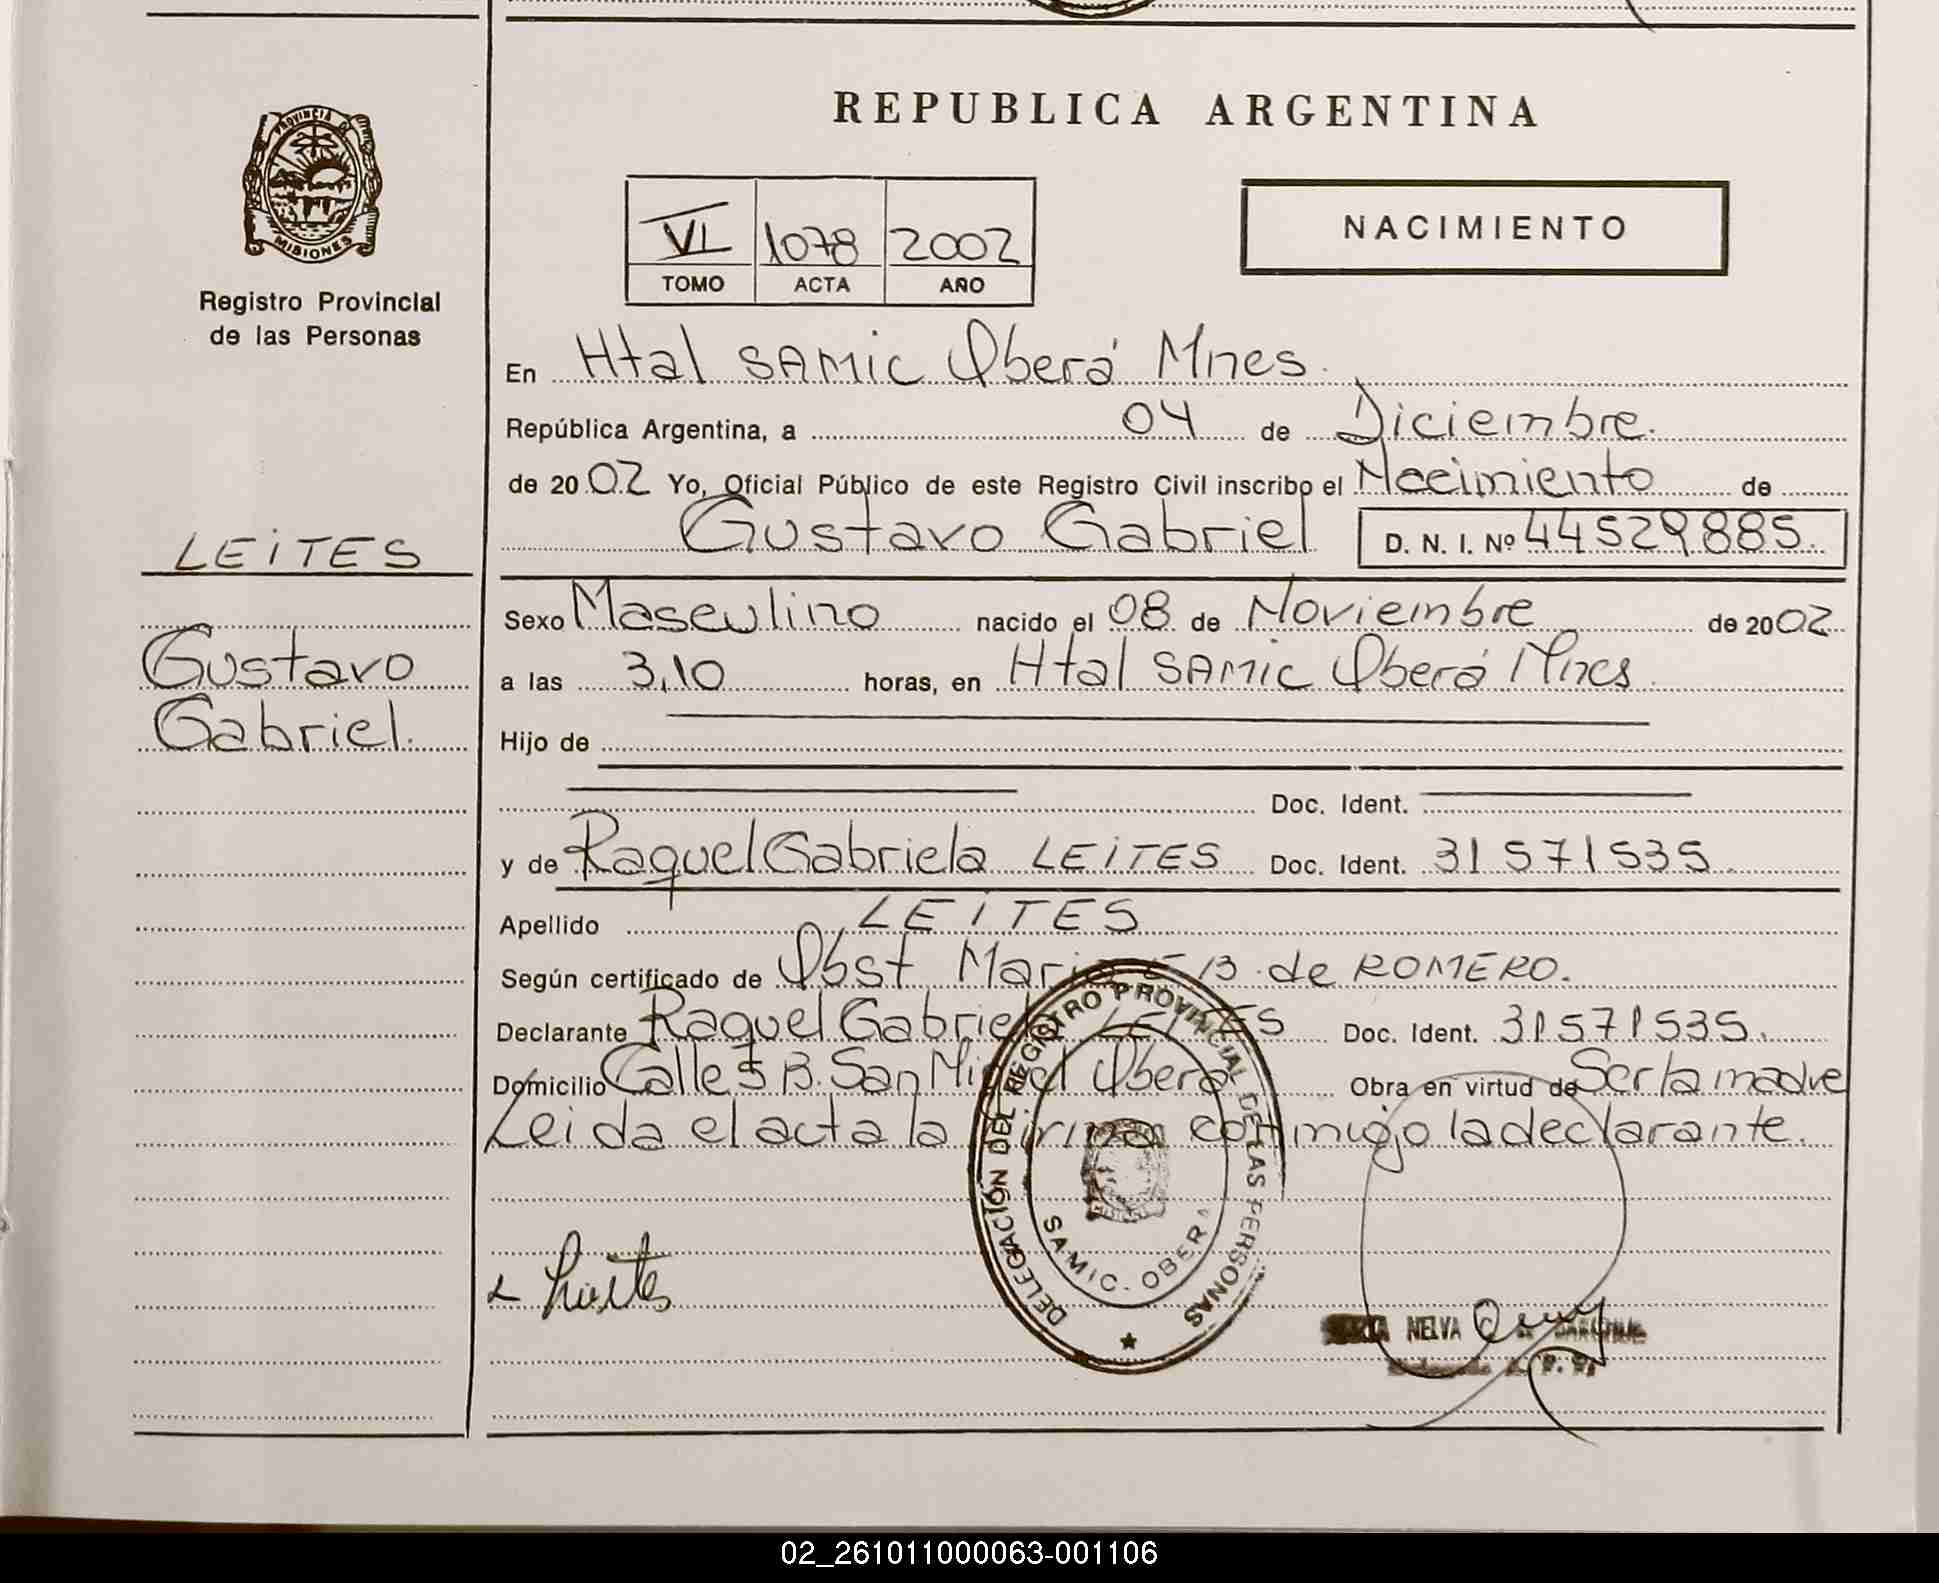 REPUBLICA ARGENTINA
PROVINCIA DE
MISIONES
Registro Provincial
de las Personas
VI 1078 2002
TOMO ACTA AÑO
NACIMIENTO
En Htal SAMIC Oberá Mnes.
República Argentina, a 04 de Diciembre.
de 2002 Yo, Oficial Público de este Registro Civil inscribo el Nacimiento de
Gustavo Gabriel D. N. I. Nº 44529885.
LEITES
Gustavo
Gabriel.
Sexo Masculino nacido el 08 de Noviembre de 2002
a las 3,10 horas, en Htal SAMIC Oberá Mnes
Hijo de
Doc. Ident.
y de Raquel Gabriela LEITES Doc. Ident. 31571535
Apellido LEITES
Según certificado de Obst Maria E B. de ROMERO.
Declarante Raquel Gabriela LEITES Doc. Ident. 31571535.
Domicilio Calle 5 B. San Miguel Oberá Obra en virtud de Ser la madre
Leida el acta la firma conmigo la declarante.
DELEGACIÓN DEL REGISTRO PROVINCIAL DE LAS PERSONAS
SAMIC. OBERA
Leites
NELVA
02_261011000063-001106